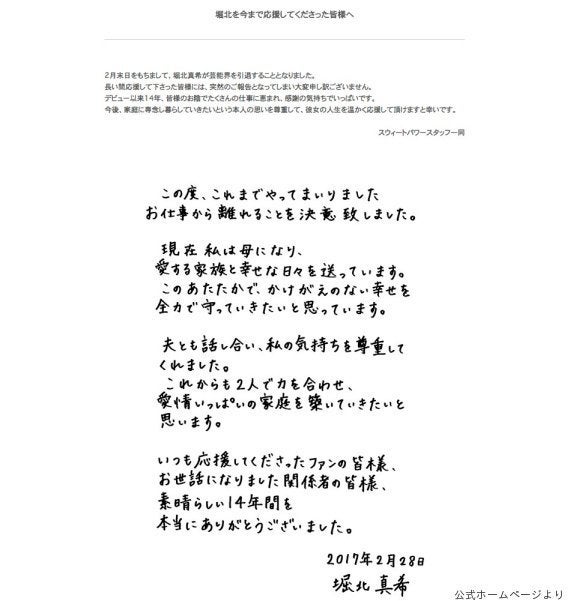 堀北を今まで応援してくださった皆様へ
2月末日をもちまして、堀北真希が芸能界を引退することとなりました。
長い間応援して下さった皆様には、突然のご報告となってしまい大変申し訳ございません。
デビュー以来14年、皆様のお陰でたくさんの仕事に恵まれ、感謝の気持ちでいっぱいです。
今後、家庭に専念し暮らしていきたいという本人の思いを尊重して、彼女の人生を温かく応援して頂けますと幸いです。
スウィートパワースタッフ一同
この度、これまでやってまいりました
お仕事から離れることを決意致しました。
現在私は母になり、
愛する家族と幸せな日々を送っています。
このあたたかで、かけがえのない幸せを
全力で守っていきたいと思っています。
夫とも話し合い、私の気持ちを尊重して
くれました。
これからも2人で力を合わせ、
愛情いっぱいの家庭を築いていきたいと
思います。
いつも応援してくださったファンの皆様、
お世話になりました関係者の皆様、
素晴らしい14年間を
本当にありがとうございました。
2017年2月28日
堀北真希
公式ホームページより